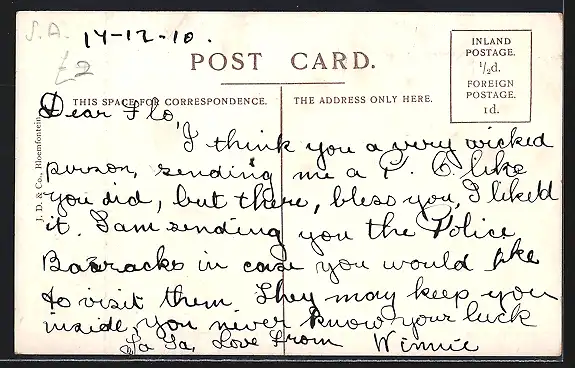 S.A. 14-12-10.
£2
POST CARD.
INLAND
POSTAGE.
½d.
FOREIGN
POSTAGE.
1d.
THIS SPACE FOR CORRESPONDENCE.
THE ADDRESS ONLY HERE.
J. D. & Co., Bloemfontein
Dear Flo,
I think you a very wicked
person, sending me a P. C. like
you did, but there, bless you, I liked
it. I am sending you the Police
Barracks in case you would like
to visit them. They may keep you
inside, you never know your luck
Ta Ta, Love from Winnie